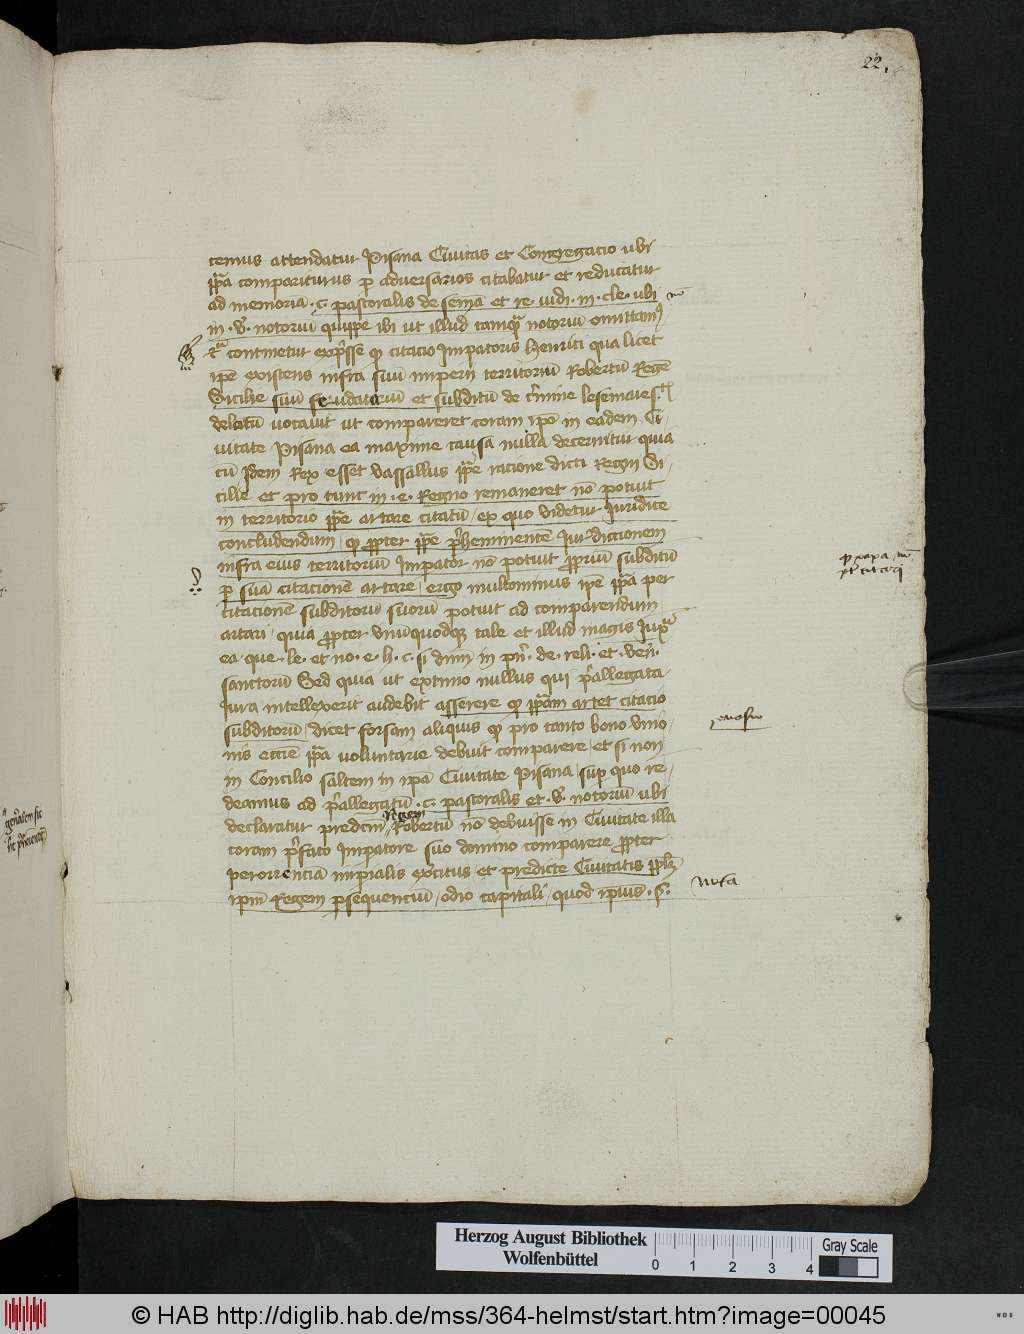 22.
temus attendatur Pisana Civitas et Congregacio ubi
ppa compariturus p adversarios citabatur et reducatur
ad memoria . c. pastoralis de sentia et re iudi . in . cle . ubi
in . v. notoriu quippe ibi ut illud tamq notoriu omittam
continetur expsse q citacio Impatoris Henrici qua licet
ipe existens infra suu imperii territoriu Robertu Rege
Sicilie suu feudatariu et subditu de crimine lese maiestatis
delatu vocavit ut compareret coram ipo in eadem Ci
vitate Pisana ea maxime causa nulla decernitur quia
cu Idem Rex esset vassallus ppe racione dicti Regni Si
cilie et pro tunc in . e. Regno remaneret no potuit
in territorio ppe artare citatu / ex quo videtur Iuridice
concludendum / q ppter ppe pheminente Iurisdictionem
infra eius territoriu Impator no potuit ppriu subditu
p sua citacione artare / ergo multominus ipe ppa per
citacione subditoru suoru potuit ad comparendum
artari / quia ppter unuquodq tale et illud magis Iuxta
ea . que . le . et no . e . h . c. si dnm in pn . de . reli . et . ven .
sanctoru Sed quia ut extimo nullus qui pallegata
Iura intellexerit audebit asserere q ppam artet citacio
subditoru / dicet forsam aliquis q pro tanto bono unio
nis eccie ppa voluntarie debuit comparere / et si non
in Concilio saltem in ipa Civitate Pisana / sup quo re
deamus ad pallegatu . c. pastoralis et . v. notoriu ubi
Regem
declaratur predcm Robertu no debuisse in Civitate illa
coram pfato Impatore suo domino comparere ppter
potenciam impialis exercitus et predicte Civitatis pplm
ipm Regem psequenciu / odio capitali / quod ipius . S.
p papa
citari
Nota
Herzog August Bibliothek
Wolfenbüttel
0 1 2 3 4
Gray Scale
© HAB http://diglib.hab.de/mss/364-helmst/start.htm?image=00045